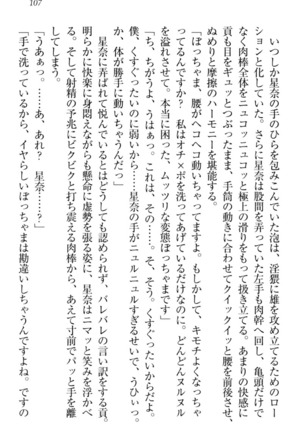 107
　いつしか星奈の手のひらを包みこんでいた泡は、淫猥に雄を攻め立てるためのロー
ションと化していた。さらに星奈は股間を弄っていた左手も肉幹に回し、亀頭だけで
なく肉棒全体をニュコッニュコッと極上の滑りをもって扱き立てる。あまりの快感に
貢も目をギュッとつぶったまま、手筒の動きに合わせてクイックイッと腰を前後させ、
ぬめりと摩擦のハーモニーを堪能する。
「ぼっちゃま、腰がヘコヘコ動いちゃってますよ。もしかして、キモチよくなっちゃ
ったんですか？　私はオチ×ポを洗ってあげているだけなのに。どんどんヌルヌル
を溢れさせて、本当に困った、ムッツリな変態ぼっちゃまです」
「ち、ちがうよ、うはぁっ。これは、その……。そ、そう。くすぐったいからだよ。
ぼく、くすぐったいのに弱いから……星奈の手がニュルニュルすぎるせいで、うひぃっ。
か、体が勝手に動いちゃうんだっ」
　星奈に弄ばれて悦んでいるとはどうしても認められず、バレバレの言い訳をする貢。
明らかに快楽に身悶えながらも懸命に虚勢を張る姿に、星奈はニマッと笑みを浮かべ
る。そして射精の予兆にビクビクと打ち震える肉棒から、あえて寸前でパッと手を離
してしまう。
「うあぁっ。……あ、あれ？　星奈……？」
「手で洗っているから、イヤらしいぼっちゃまは勘違いしちゃうんですよね。ですの